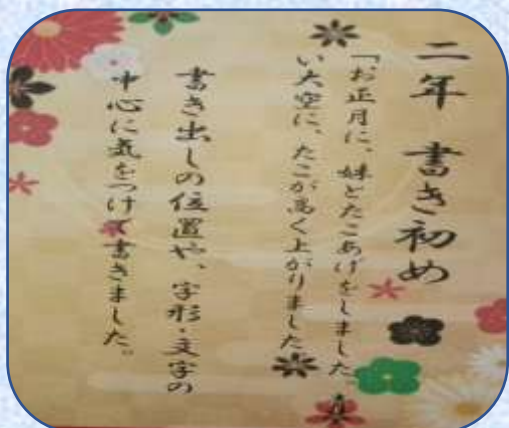 二年 書き初め
「お正月に、妹とたこあげをしました。
い大空に、たこが高く上がりました
書き出しの位置や、字形・文字の
中心に気をつけて書きました。